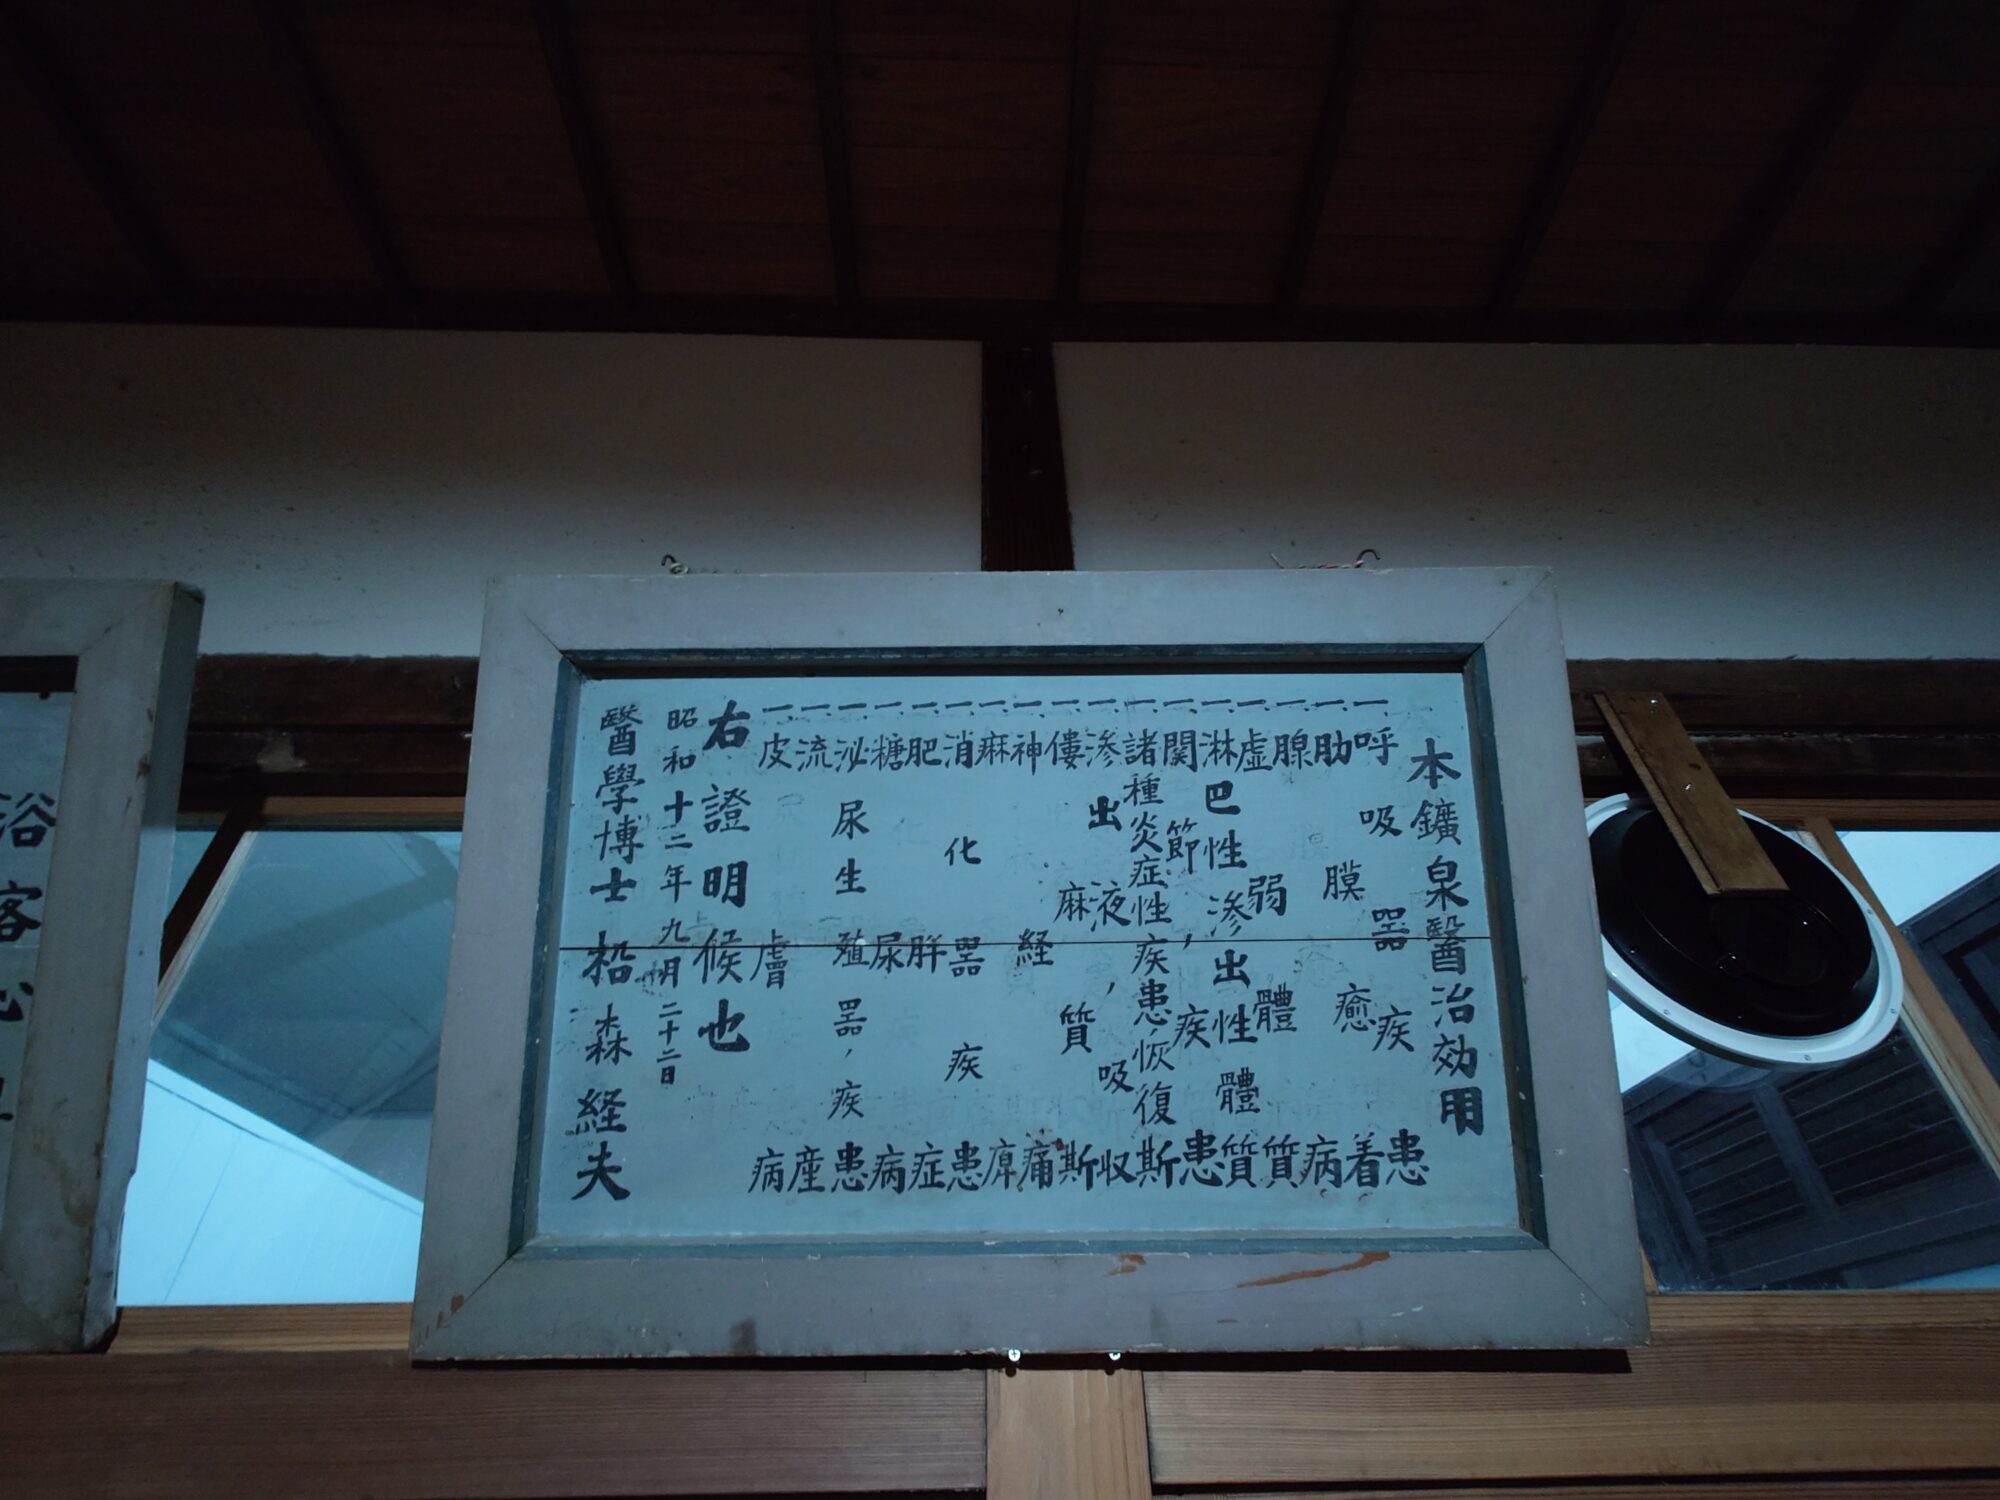 本鑛泉醫治効用
一、呼吸器疾患
一、肋膜癒着
一、腺病
一、虚弱體質
一、淋巴性滲出性體質
一、関節、疾患
一、諸種炎症性疾患、恢復斯
一、滲出液、吸收
一、僂麻質斯
一、神経痛
一、麻痺
一、消化器疾患
一、肥胖症
一、糖尿病
一、泌尿生殖器、疾患
一、流産
一、皮膚病
右證明候也
昭和十二年九月二十二日
醫學博士 松森経夫
浴客心